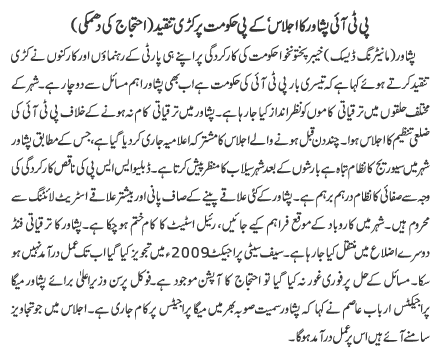 پی ٹی آئی پشاور کا اجلاس کے پی حکومت پر کڑی تنقید (احتجاج کی دھمکی)
پشاور (مانیٹرنگ ڈیسک) خیبر پختونخوا حکومت کی کارکردگی پر اپنے ہی پارٹی کے رہنماؤں اور کارکنوں نے کڑی
تنقید کرتے ہوئے کہا ہے کہ تیسری بار پی ٹی آئی کی حکومت ہے اب بھی پشاور اہم مسائل سے دوچار ہے۔ شہر کے
مختلف حلقوں میں ترقیاتی کاموں کو نظر انداز کیا جا رہا ہے۔ پشاور میں ترقیاتی کام نہ ہونے کے خلاف پی ٹی آئی کی
ضلعی تنظیم کا اجلاس ہوا۔ چند دن قبل ہونے والے اجلاس کا مشترکہ اعلامیہ جاری کر دیا گیا ہے، جس کے مطابق پشاور
میں سیوریج کا نظام تباہ ہے بارشوں کے بعد شہر سیلاب کا منظر پیش کرتا ہے۔ ڈبلیو ایس ایس پی کی ناقص کارکردگی کی
وجہ سے صفائی کا نظام درہم برہم ہے۔ پشاور کے کئی علاقے پینے کے صاف پانی اور بیشتر علاقے اسٹریٹ لائٹنگ سے
محروم ہیں۔ شہر میں کاروباد کے موقع فراہم کیے جائیں، رئیل اسٹیٹ کا کام ختم ہو چکا ہے۔ پشاور کا ترقیاتی فنڈ
دوسرے اضلاع میں منتقل کیا جا رہا ہے۔ سیف سٹی پراجیکٹ 2009ء میں تجویز کیا گیا اب تک عمل درآمد نہیں ہو
سکا۔ مسائل کے حل پر فوری غور نہ کیا گیا تو احتجاج کا آپشن موجود ہے۔ فوکل پرسن وزیراعلیٰ برائے پشاور میگا
پراجیکٹس ارباب عاصم نے کہا کہ پشاور سمیت صوبہ بھر میں میگا پراجیٹس پر کام جاری ہے۔ اجلاس میں جو تجاویز
سامنے آئے ہیں اس پر عمل درآمد ہو گا۔